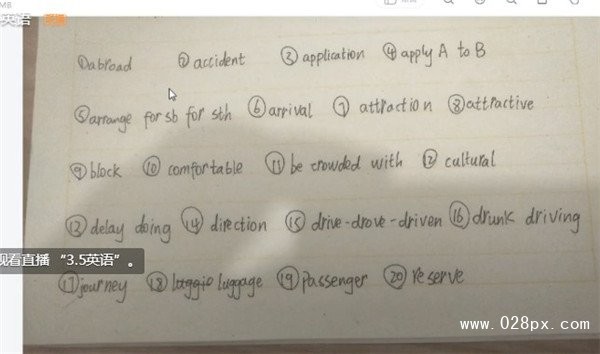 英语
①abroad ②accident ③application ④apply A to B
⑤arrange for sb for sth ⑥arrival ⑦attraction ⑧attractive
⑨block ⑩comfortable ⑪be crowded with ⑫cultural
⑬delay doing ⑭direction ⑮drive-drove-driven ⑯drunk driving
观看直播 “3.5英语”。
⑰journey ⑱luggage ⑲passenger ⑳reserve
www.028px.com